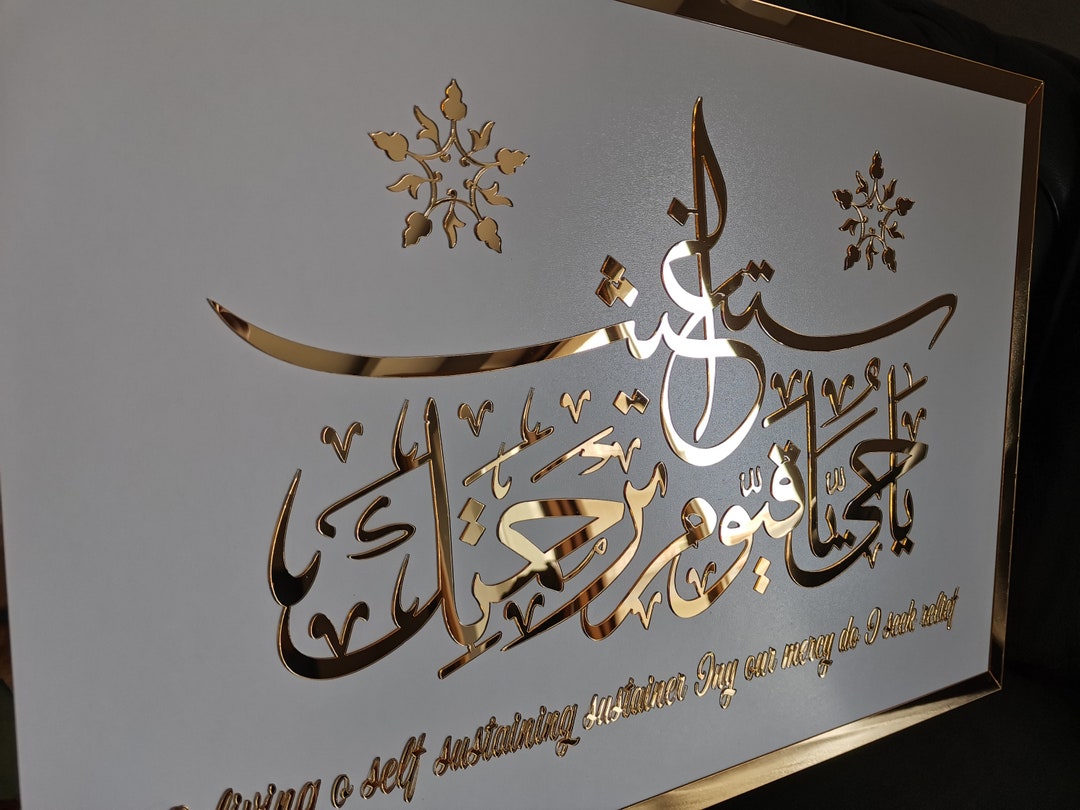 يَا حَيُّ يَا قَيُّومُ بِرَحْمَتِكَ
أستغيث
living o self sustaining sustainer Iny our mercy do I seek relief